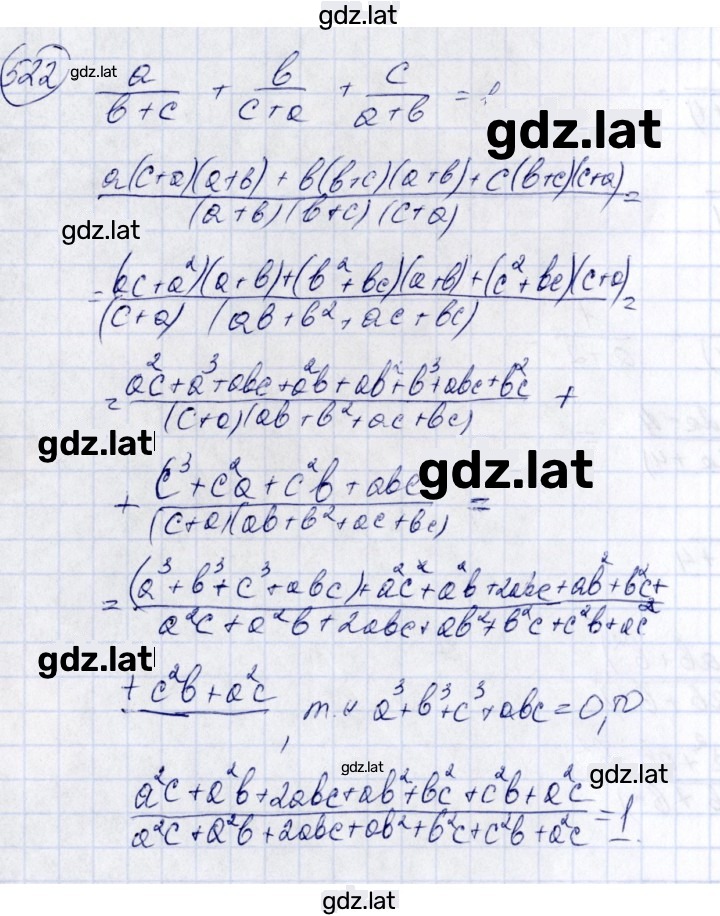 gdz.lat
522 gdz.lat
a/(b+c) + b/(c+a) + c/(a+b) = ?
gdz.lat
(a(c+a)(a+b) + b(b+c)(a+b) + c(b+c)(c+a))/((a+b)(b+c)(c+a)) =
gdz.lat
= ((ac+a²)(a+b)+(b²+bc)(a+b)+(c²+bc)(c+a))/((c+a)(ab+b²+ac+bc)) =
= (a²c+a³+abc+a²b+ab²+b³+abc+b²c)/((c+a)(ab+b²+ac+bc)) +
gdz.lat
+ (c³+c²a+c²b+abc)/((c+a)(ab+b²+ac+bc)) =
gdz.lat
= ((a³+b³+c³+abc)+a²c+a²b+2abc+ab²+b²c+
a²c+a²b+2abc+ab²+b²c+c²b+ac²
gdz.lat
+c²b+a²c, т.к a³+b³+c³+abc=0, то
gdz.lat
gdz.lat
(a²c+a²b+2abc+ab²+bc²+c²b+a²c)/(a²c+a²b+2abc+ab²+b²c+c²b+a²c) = 1
gdz.lat